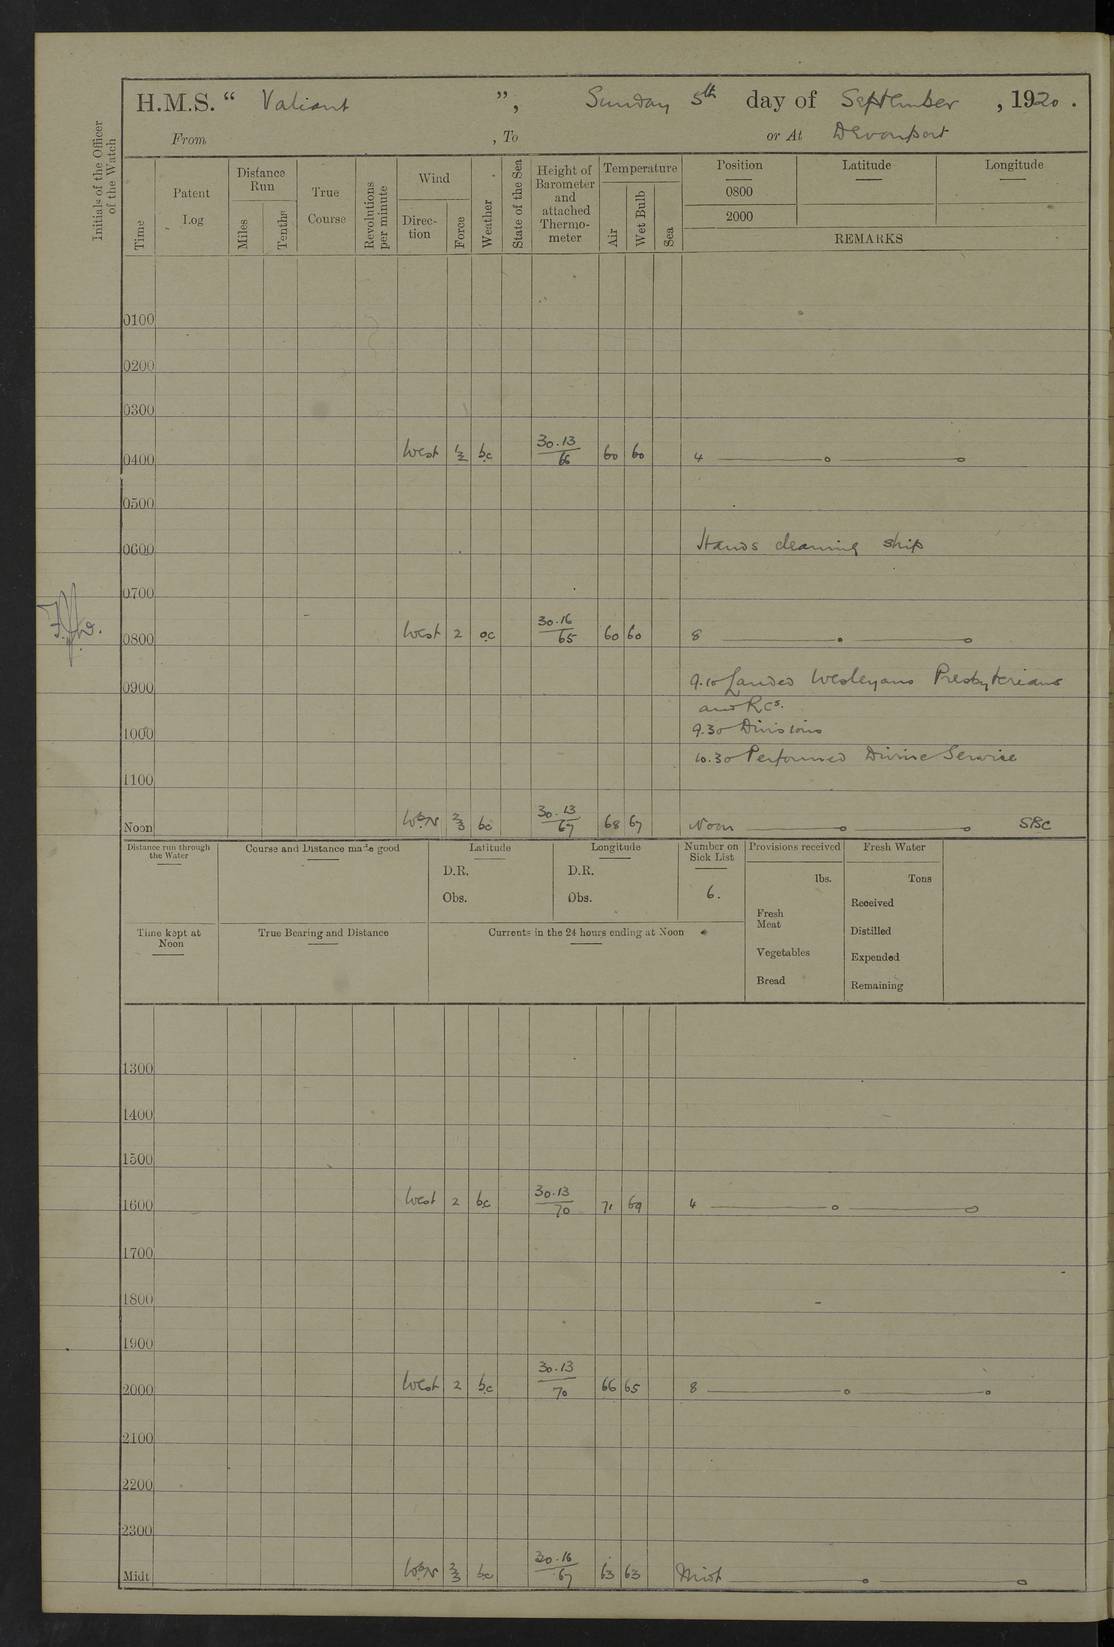 H.M.S. “ Valiant ”, Sunday 5th day of September , 1920 .
From , To or At Devonport
Initials of the Officer of the Watch
Time
Patent Log
Distance Run
Miles
Tenths
True Course
Revolutions per minute
Wind
Direc-tion
Force
Weather
State of the Sea
Height of Barometer and attached Thermo-meter
Temperature
Air
Wet Bulb
Sea
Position Latitude Longitude
0800
2000
REMARKS
0100
0200
0300
0400 West 1/2 bc 30.13/66 60 60 4
0500
0600 Hands cleaning ship
0700
0800 West 2 oc 30.16/65 60 60 8
0900 9.10 Landed Wesleyans Presbyterians
and RCs.
1000 9.30 Divisions
10.30 Performed Divine Service
1100
Noon WBN 2/3 bc 30.13/67 68 67 Noon SBC
Distance run through the Water
Course and Distance made good
Latitude
D.R.
Obs.
Longitude
D.R.
Obs.
Number on Sick List
6.
Provisions received
lbs.
Fresh Meat
Vegetables
Bread
Fresh Water
Tons
Received
Distilled
Expended
Remaining
Time kept at Noon
True Bearing and Distance
Currents in the 24 hours ending at Noon
1300
1400
1500
1600 West 2 bc 30.13/70 71 69 4
1700
1800
1900
2000 West 2 bc 30.13/70 66 65 8
2100
2200
2300
Midt WBN 2/3 bc 30.16/67 63 63 Midt